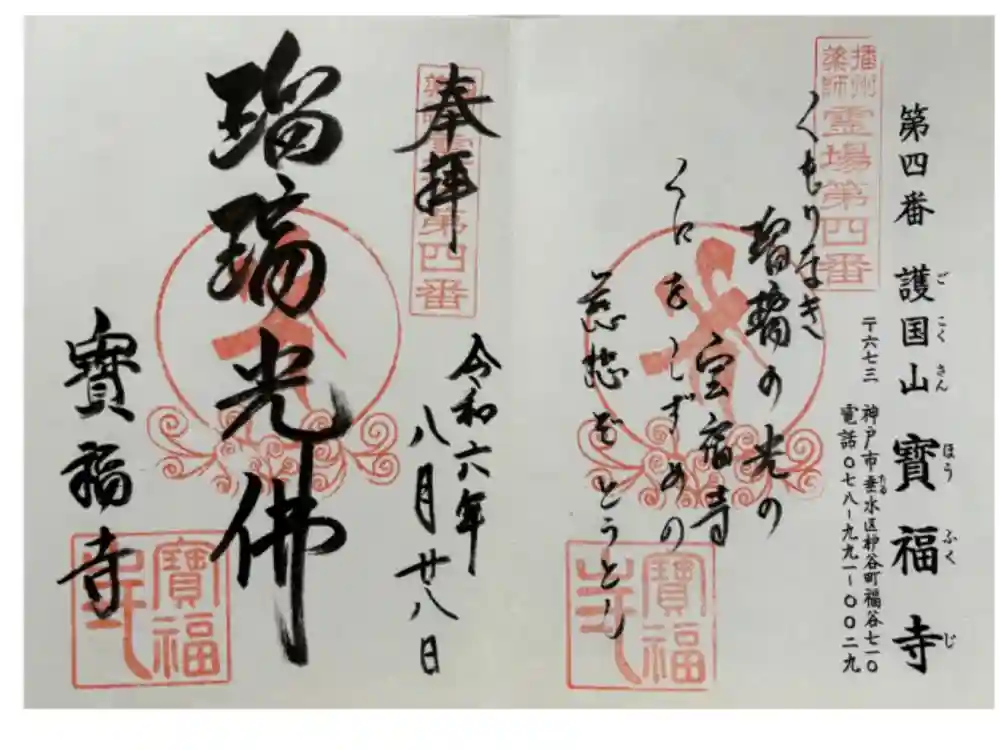 第四番 護国山 寶福寺
ごこくさん ほうふくじ
〒六七三 神戸市垂水区枦谷町福谷七一〇
たる
電話〇七八ー九九一ー〇〇二九
播州
薬師
霊場第四番
くもりなき
瑠璃の光の
宝福寺
くにをしずめの
慈悲ぞとうとし
寶福
寺
奉拝
第四番
令和六年
八月廿八日
瑠璃光佛
寶福寺
寶福
寺